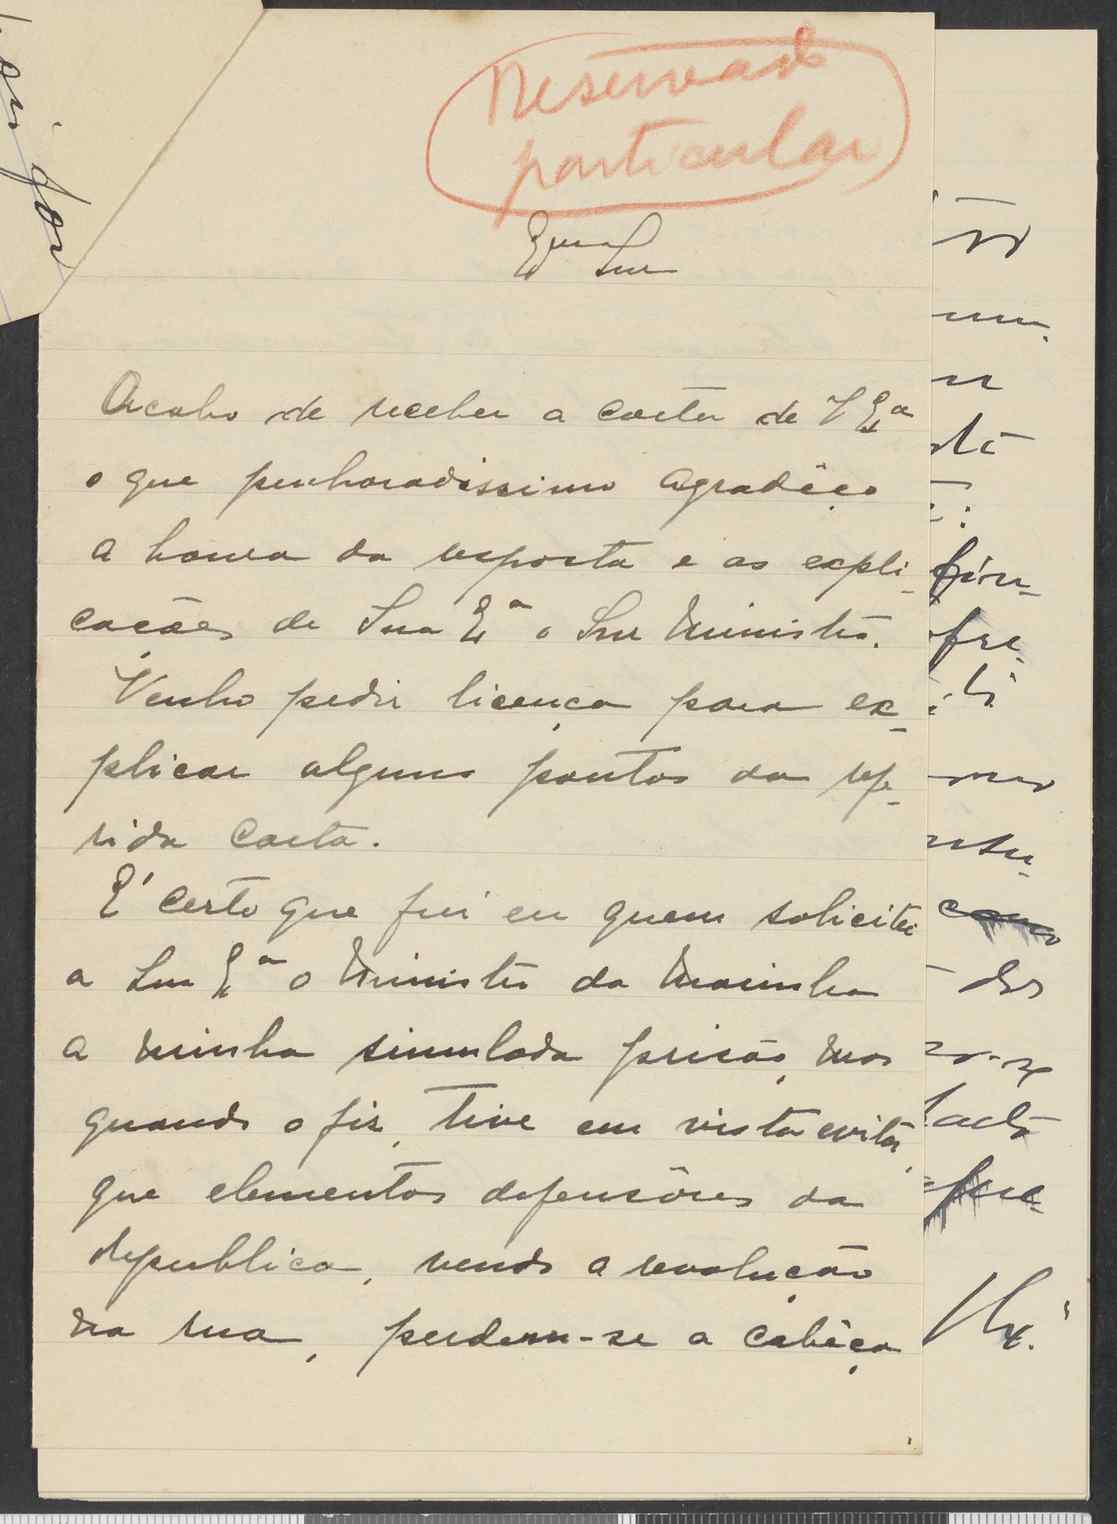 Reservado
particular
Exmo Snr
Acabo de receber a carta de V Exª
o que penhoradissimo agradêço
a honra da resposta e as expli-
cações de Sua Exª o Snr Ministro.
Venho pedir licença para ex-
plicar alguns pontos da refe-
rida carta.
É certo que fui eu quem solicitei
a Sua Exª o Ministro da Marinha
a minha simulada prisão, mas
quando o fiz, tive em vista evitar,
que elementos defensôres da
Republica, vendo a revolução
na rua, perdem-se a cabêça